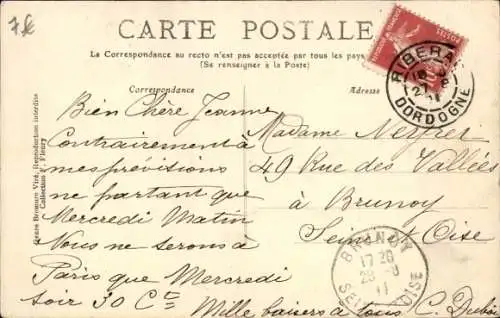 7 €
CARTE POSTALE
La Correspondance au recto n'est pas acceptée par tous les pays
(Se renseigner à la Poste)
Correspondance
Adresse
RIBERAC
27 8
11
DORDOGNE
Bien Chère Jeanne
Contrairement à
mes prévisions
ne partant que
Mercredi Matin
Nous ne serons à
Paris que Mercredi
soir 30 Ct
Mille baisers à tous C. Dubis
Madame Neyret
49 Rue des Vallées
à Brunoy
Seine et Oise
BRUNOY
17 20
28 8
11
SEINE ET OISE
Bromure Viré, Reproduction interdite
Collection F. Fleury